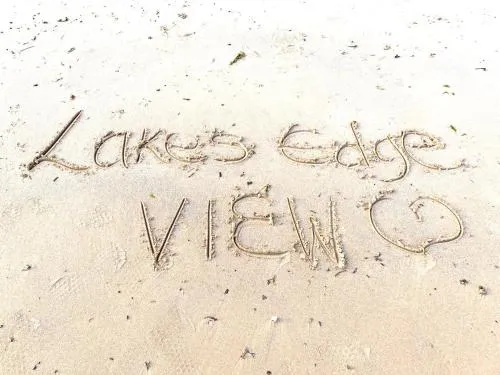 Lakes Edge
VIEW